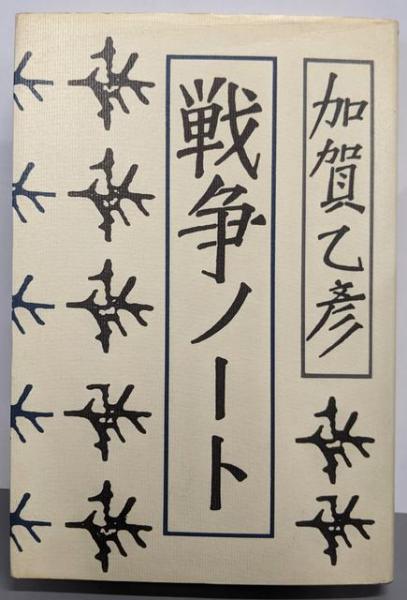 加賀乙彦
戦争ノート